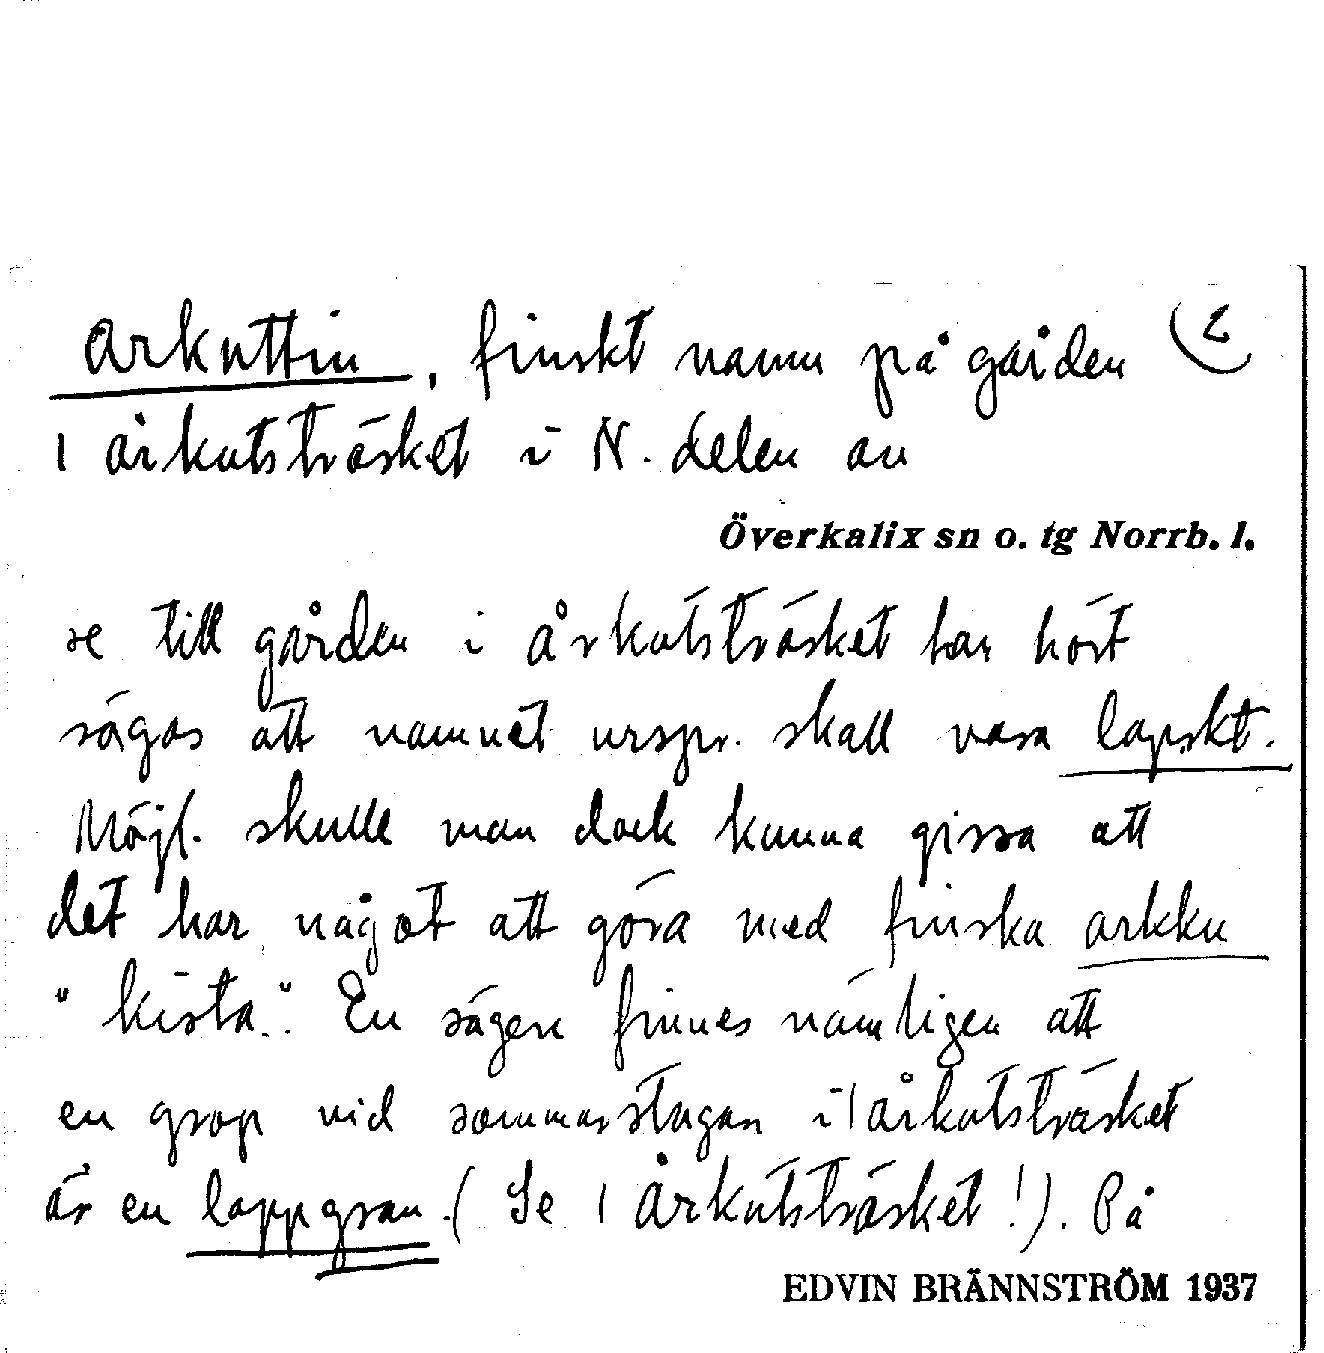 arkuttin, finskt namn på gården (2
1 årkutsträsket i N. delen av
Överkalix sn o. tg Norrb. l.
re till gården i årkutsträsket har hört
sägas att namnet urspr. skall vara lapskt.
Möjl. skulle man dock kunna gissa att
det har något att göra med finska arkku
"kista." En sägen finnes nämligen att
en grop vid sommarstugan i 1 årkutsträsket
är en lappgrav. (Se 1 årkutsträsket!). På
EDVIN BRÄNNSTRÖM 1937